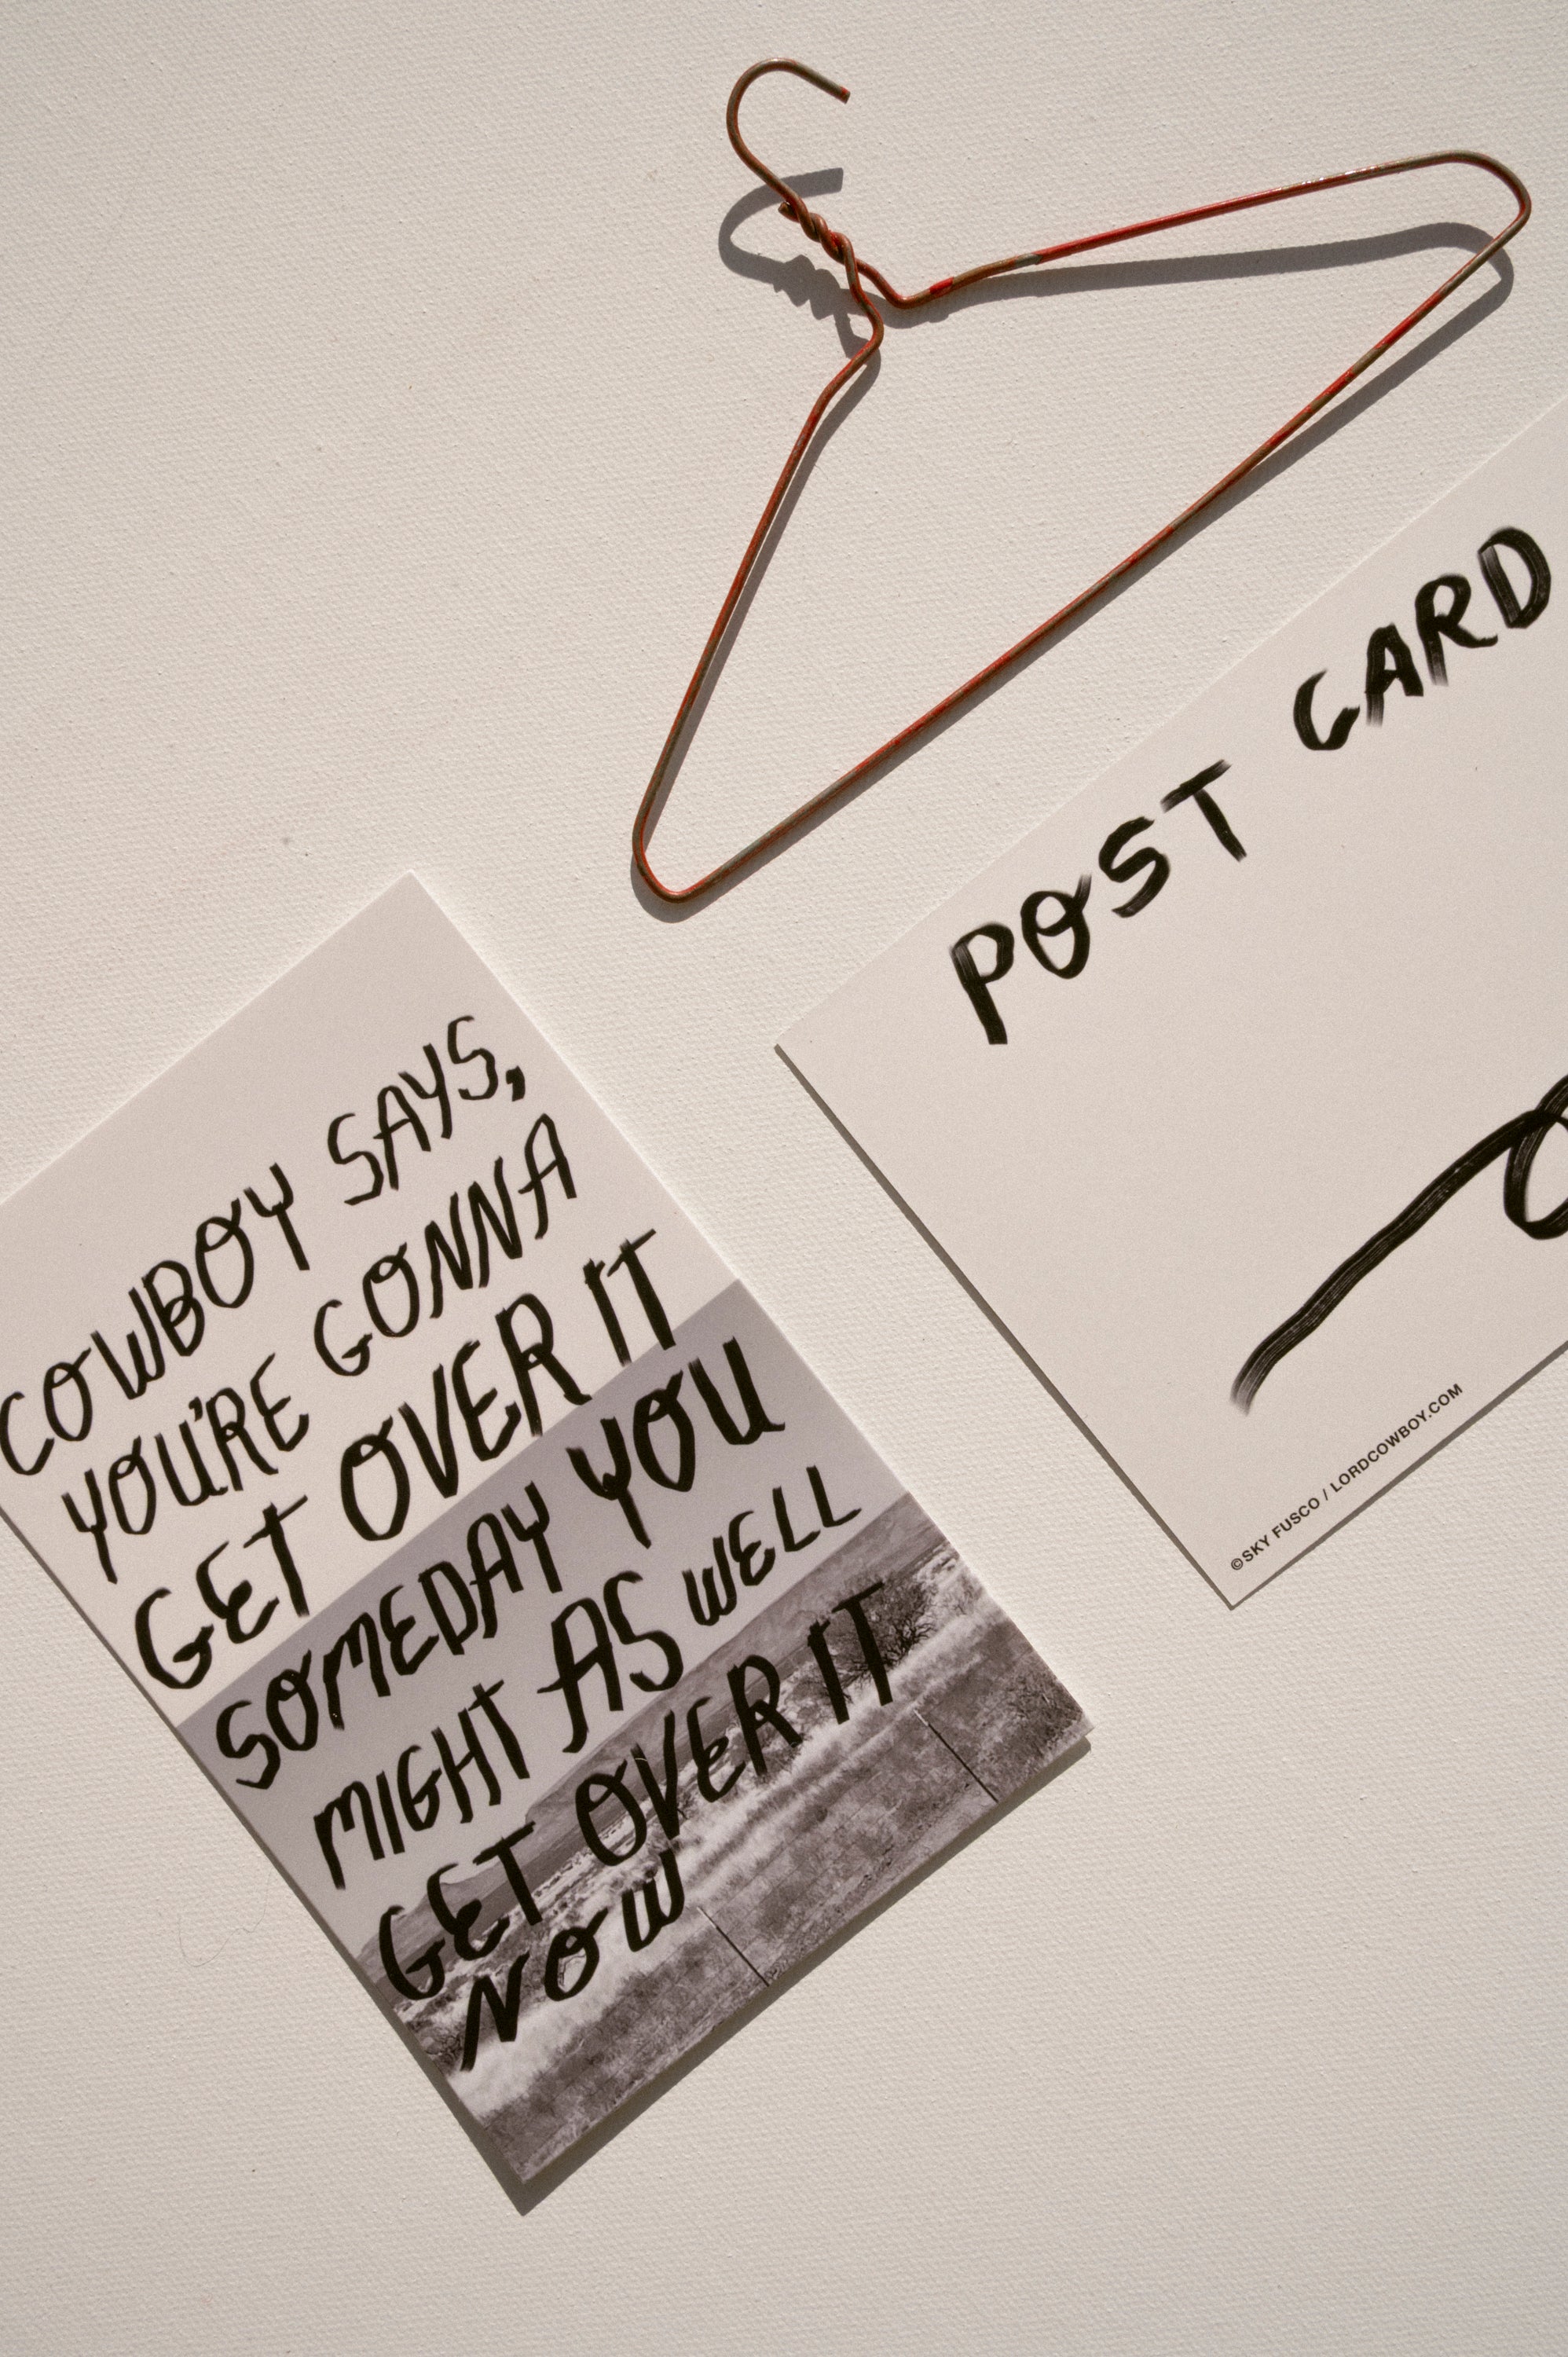 COWBOY SAYS,
YOU'RE GONNA
GET OVER IT
SOMEDAY YOU
MIGHT AS WELL
GET OVER IT
NOW
POST CARD
©SKY FUSCO / LORDCOWBOY.COM